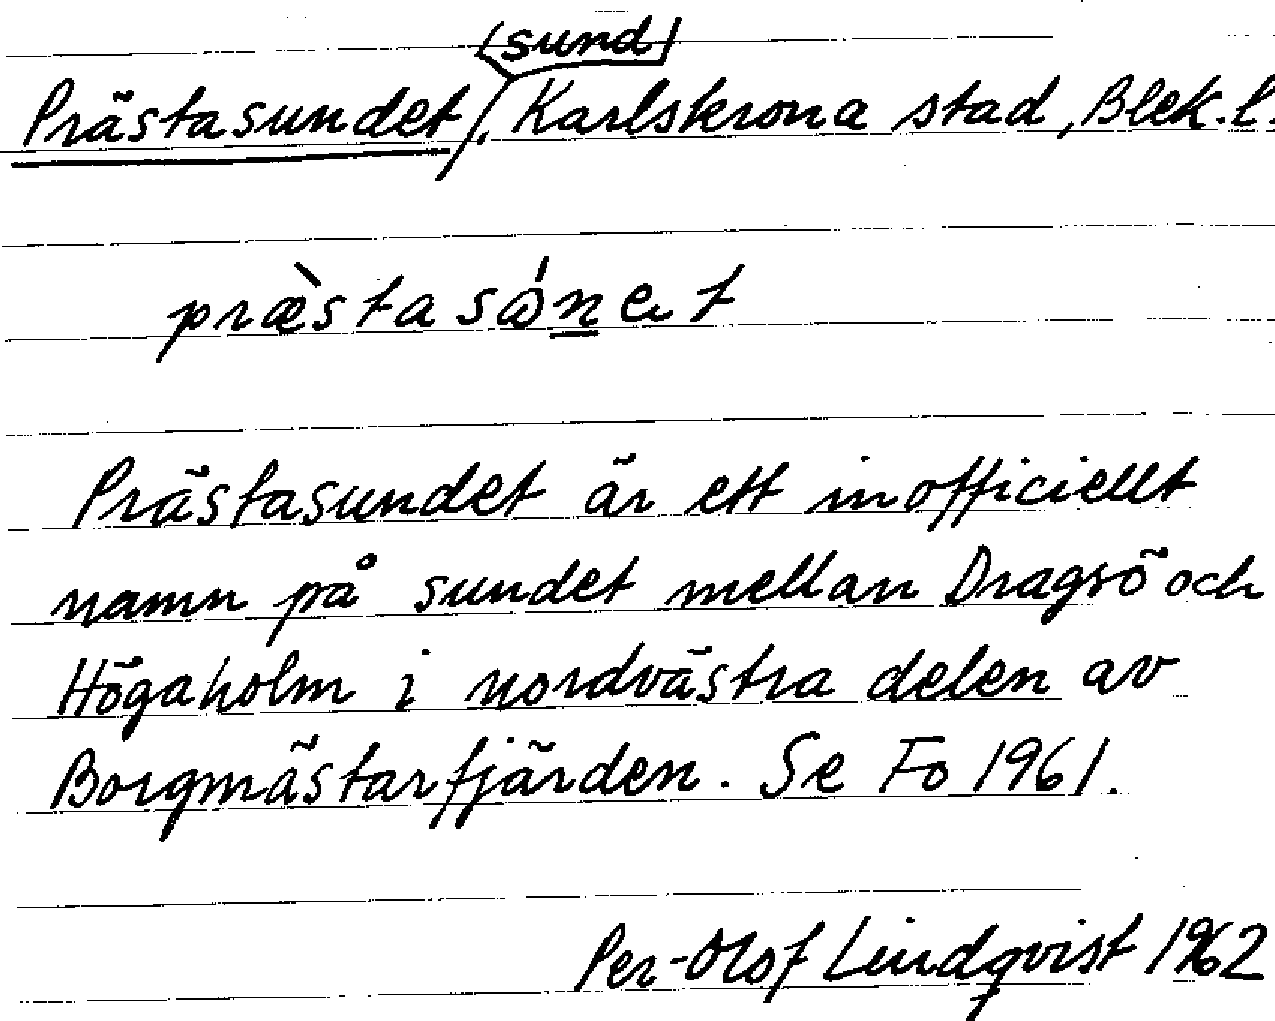 (sund)
Prästasundet, Karlskrona stad, Blek. l.
præ̀stasǿn̲et
Prästasundet är ett inofficiellt
namn på sundet mellan Dragsö och
Högaholm i nordvästra delen av
Borgmästarfjärden. Se Fo 1961.
Per-Olof Lindqvist 1962